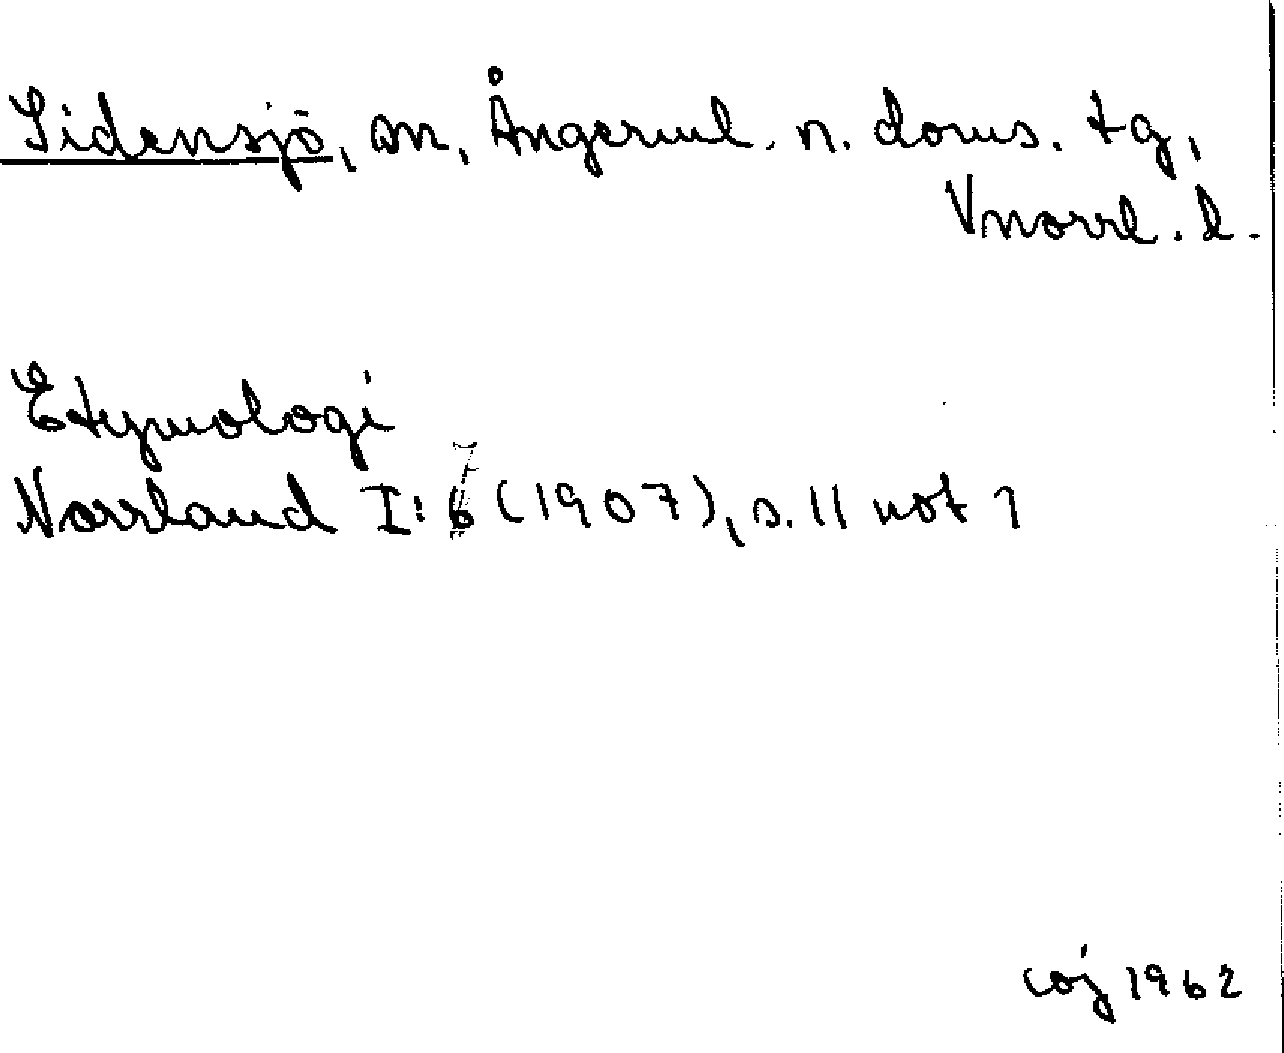 Sidensjö, sn, Ångerml. n. doms. tg,
Vnorrl. l.
Etymologi
Norrland I: 6 (1907), s. 11 not 1
coj 1962